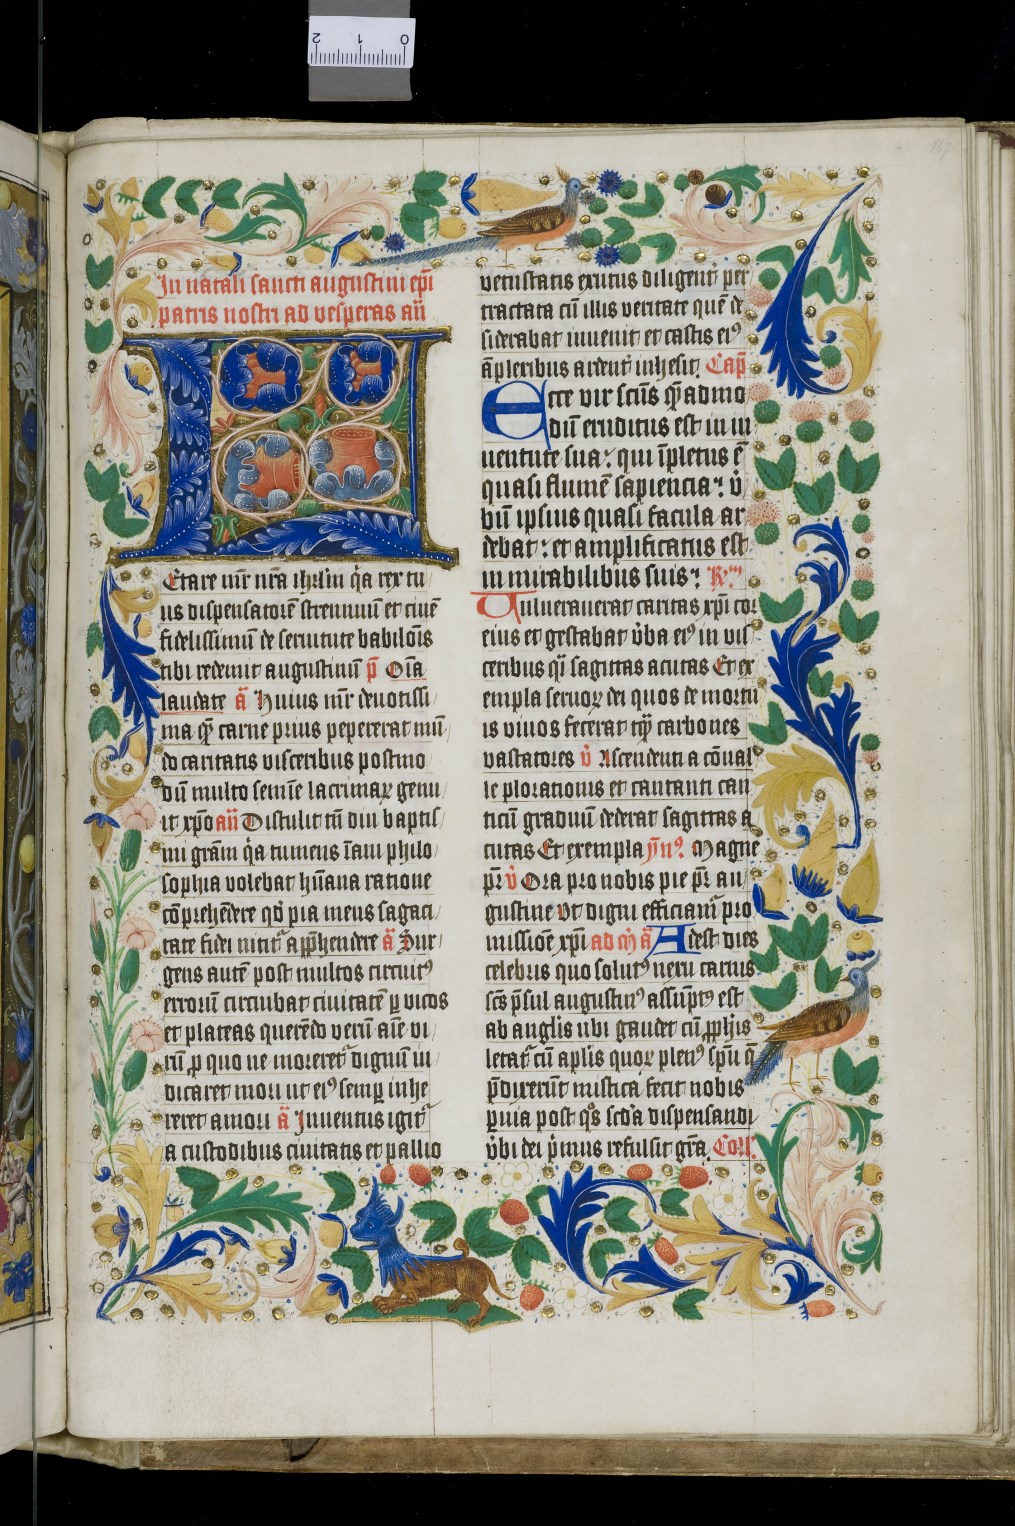 In natali sancti augustini ep̄i
patris nostri ad vesperas an̄
L
Etare mr̄ nr̄a ihrl̄m q̇a rex tu
us dispensatorē strenuuū et ciuē
fidelissimū de seruitute babilōis
tibi redemit augustinū p̄ Oīa
laudate ā Huius mr̄ deuotissi
ma que carne prius pepererat mū
do caritatis visceribus postmo
dū multo semīe lacrimaꝝ genu
it xp̄o an̄ Distulit tn̄ diu baptis
mi grām q̇a tumens īam philo
sophia volebat hūana ratione
cōprehēdere qd̓ pia mens sagaci
tate fidei nititᷣ app̄hendere ā Sur
gens autē post multos circuitꝰ
errorū circuibat ciuitatē ꝑ vicos
et plateas querēdo verū aīe vi
rū ꝓ quo ne moreretᷣ dignū iu
dicaret mori ut eiꝰ semꝑ inhe
reret amori ā Inuentus igitᷣ
a custodibus ciuitatis et pallio
vetustatis exutus diligentᷣ per
tractata cū illis veritate quē de
siderabat inuenit et castis eiꝰ
āplexibus ardentᷣ inhesit. Cap̄
Ecce vir scūs quēadmo
dū eruditus est in iu
uentute sua: qui īpletus ē
quasi flumē sapiencia: v̓
bū ipsius quasi facula ar
debat: et amplificatus est
in mirabilibus suis: R̄m
Uulnerauerat caritas xp̄i cor
eius et gestabat v̓ba eiꝰ in vis
ceribus qͣsi sagittas acutas Et ex
empla seruoꝝ dei quos de mortu
is viuos fecerat tqͣ carbones
vastatores v̓ Ascendenti a cōual
le plorationis et cantanti can
ticū graduū dederat sagittas a
cutas Et exempla ym̄ꝰ. Magne
pr̄ v̓ Ora pro nobis pie pr̄ au
gustine Vt digni efficiamᷣ pro
missiōe xp̄i ad m̄ ā Adest dies
celebris quo solutꝰ nexu carnis
scs̄ p̄sul augustinꝰ assūptꝰ est
ab anglis ubi gaudet cū ꝓphīs
letatᷣ cū aplīs quoꝝ plenꝰ sp̄u q̄
p̄dixerūt mistica fecit nobis
ꝑuia post qͦs scd̄a dispensandi
v̓bi dei p̓mus refulsit grā. Coll̄.